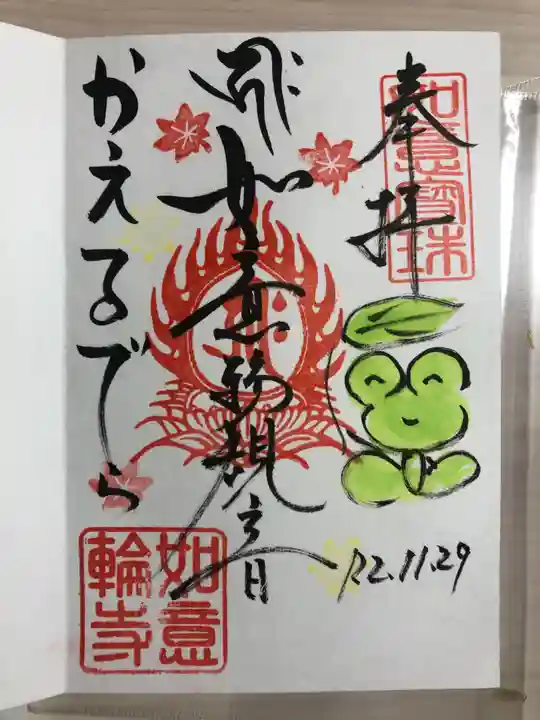 如意寶珠
奉拝
R2.11.29
如意輪観世音
かえるでら
如意
輪寺